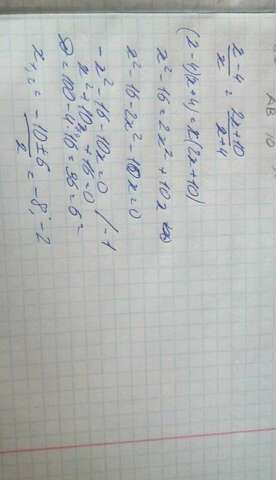 x-4/x = 2x+10/x+4
(x-4)(x+4) = x(2x+10)
x²-16 = 2x²+10x
x²-16-2x²-10x=0
-x²-16-10x=0 /-1
x²+10x+16=0
D=100-4·16=36=6²
x₁,₂ = -10±6/2 = -8; -2